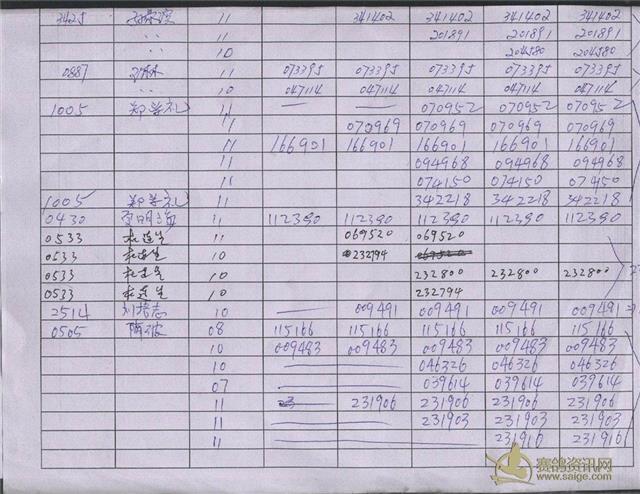 3425 11 341402 341402 341402 341402
〃 11 201891 201891 201891
〃 10 204580 204580
0887 11 073395 073395 073395 073395 073395
〃 10 047114 047114 047114 047114 047114
1005 郑善礼 11 — — 070952 070952 070952
11 070969 070969 070969 070969
11 166901 166901 166901 166901 166901
11 094968 094968 094968
11 074150 074150 074150
1005 郑善礼 11 342218 342218 342218
0430 11 112390 112390 112390 112390 112390
0533 11 069520 069520
0533 10 232794
0533 10 232800 232800 232800
0533 10 232794
2514 10 — 009491 009491 009491 009491
0505 08 115166 115166 115166 115166 115166
10 009483 009483 009483 009483 009483
10 046326 046326 046326
07 039614 039614 039614
11 231906 231906 231906 231906
11 231903 231903 231903
11 231910 231910
赛鸽资讯网
www.saige.com